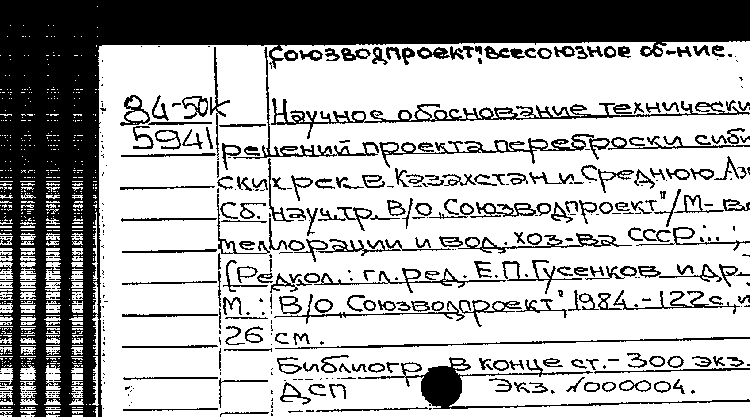 Союзводпроект", всесоюзное об-ние.
84-50К Научное обоснование технически
5941 решений проекта переброски сиби
ских рек в Казахстан и Среднюю Аз
Сб. науч. тр. В/О „Союзводпроект"/М-во
мелиорации и вод. хоз-ва СССР... ;
[Редкол.: гл. ред. Е.П.Гусенков и др.
М.: В/О „Союзводпроект", 1984.-122с., и
26 см.
Библиогр. в конце ст.- 300 экз.
ДСП Экз. №000004.